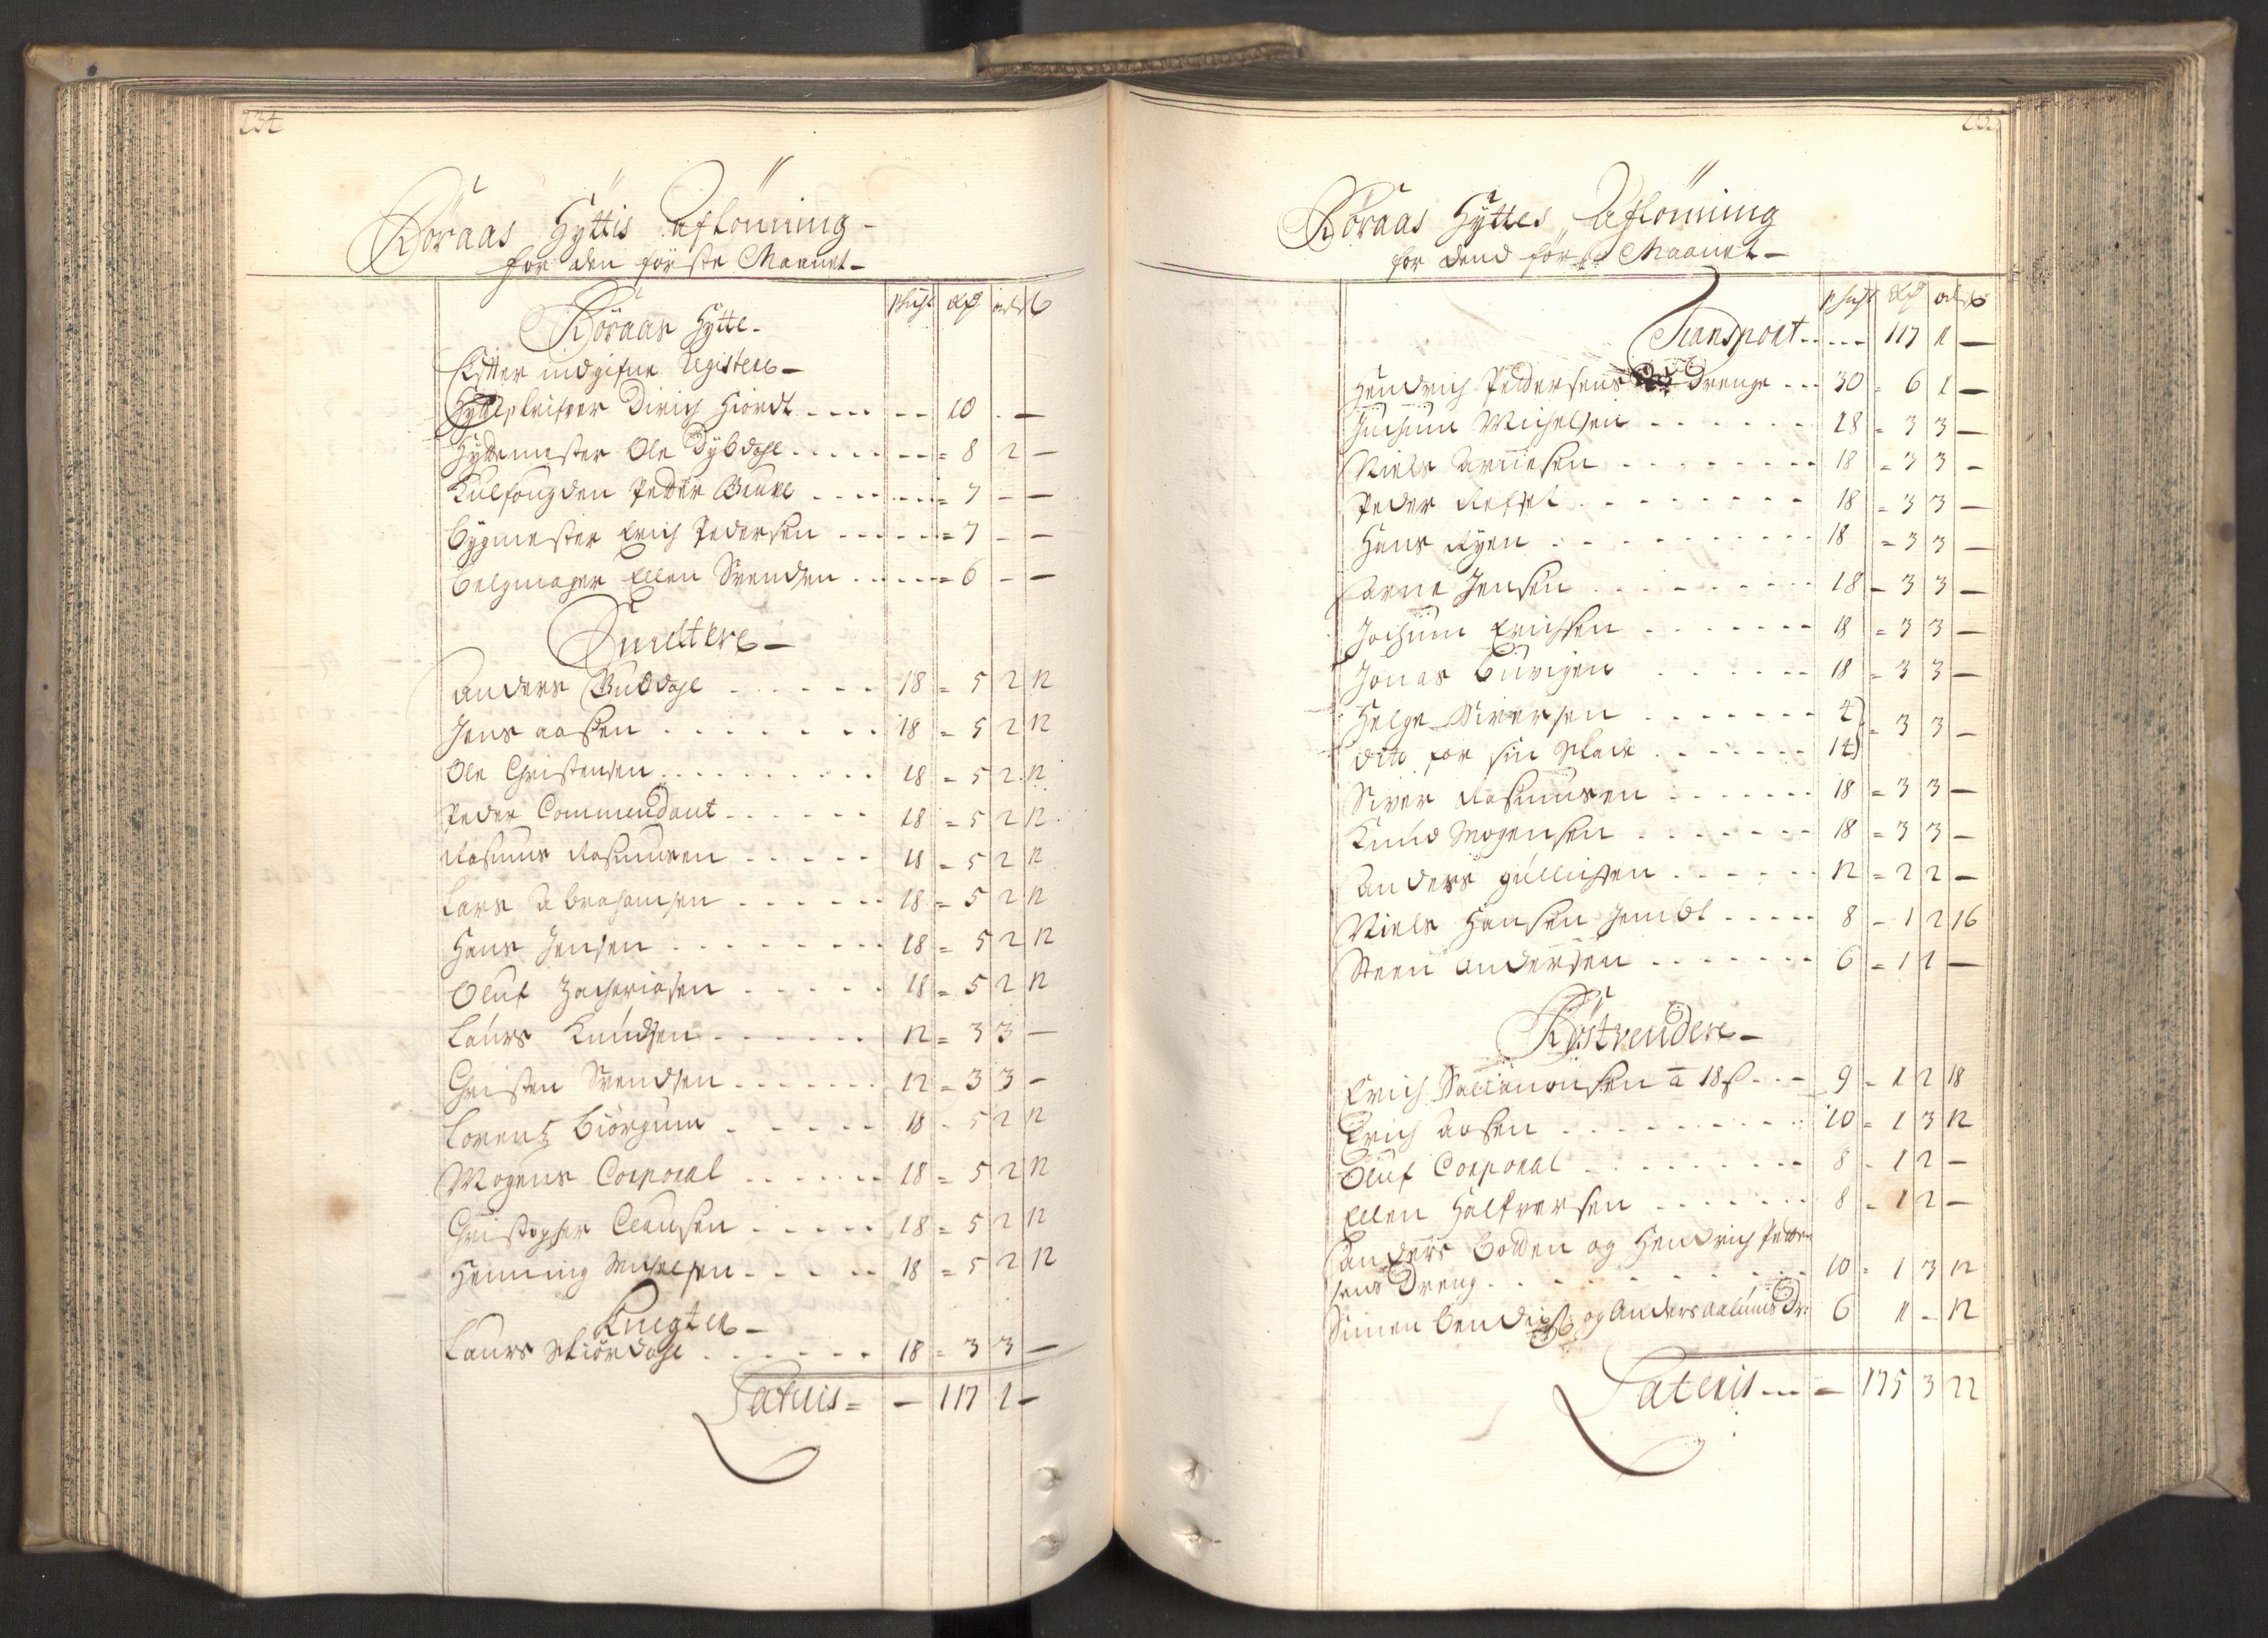 234
Röraas Hyttis Aflönning -
for den förste Maanet -
skift | rdr | ort | s
Röraas Hytte -
Efter indgifne Registere -
Hytteskrifver Dirich Hiordt - - - - - - 10 - -
Hyttemester Ole Dybdahl - - - - - - = 8 2 -
Kulfougden Peder - - - - - - = 7 - -
Bygmester Erich Pedersen - - - - - = 7 - -
Belgmager Ellen Svendsen - - - - - = 6 - -
Smeltere -
Anders Buddahl - - - - - - 18 = 5 2 12
Jens Aassen - - - - - - - 18 = 5 2 12
Ole Christensen - - - - - - - - - 18 = 5 2 12
Peder Commendant - - - - - - 18 = 5 2 12
Rasmus Rasmusen - - - - - 18 = 5 2 12
Lars Abrahamsen - - - - - - 18 = 5 2 12
Hans Jensen - - - - - - - - 18 = 5 2 12
Oluf Zachariasen - - - - - 18 = 5 2 12
Laurs Knudsen - - - - - - 12 = 3 3 -
Christen Svendsen - - - - - - - 12 = 3 3 -
Lorentz Biörgum - - - - - 18 - 5 2 12
Mogens Corporal - - - - - - 18 = 5 2 12
Christopher Clausen - - - - - 18 = 5 2 12
Henning Michelsen - - - - - 18 = 5 2 12
Knegter -
Laurs Skiördahl - - - - - - 18 = 3 3 -
Lateris = - 117 1 -
Röraas Hyttes Aflönning
for dend förste Maanet -
skift | rdr | ort | s
Transport - - - - - 117 1 -
Hendrich Peddersens Drenge - - - 30 = 6 1 -
Jochum Michelsen - - - - - - 18 = 3 3 -
Niels Arnesen - - - - - - - - 18 = 3 3 -
Peder Refset - - - - - - - - 18 = 3 3 -
Hans Ryen - - - - - - - - - - 18 = 3 3 -
Arne Jensen - - - - - - - 18 = 3 3 -
Jochum Erichsen - - - - - - - 18 = 3 3 -
Jonas Buvigen - - - - - - 18 = 3 3 -
Helge Siversen - - - - - - - 4)
dito for sin - - - - - - - 14) = 3 3 -
Siver Rasmusen - - - - - - - 18 = 3 3 -
Knud Mogensen - - - - - - - 18 = 3 3 -
Anders Gulliksen - - - - - - 12 = 2 2 -
Niels Hansen Jembt - - - - - 8 = 1 2 16
Steen Andersen - - - - - - - 6 = 1 1 -
Röstvendere -
Erich â 18 s - - - 9 = 1 2 18
Erich Aasen - - - - - - - - - 10 = 1 3 12
Oluf Corporal - - - - - - - - - 8 = 1 2 -
Ellen Halfversen - - - - - - - 8 = 1 2 -
Anders Bolden og Hendrich Peder-
sens Dreng - - - - - - - - - 10 = 1 3 12
Simen Bendixs og Anders Aalunds Dr: 6 1 - 12
Lateris - - - = 175 3 22